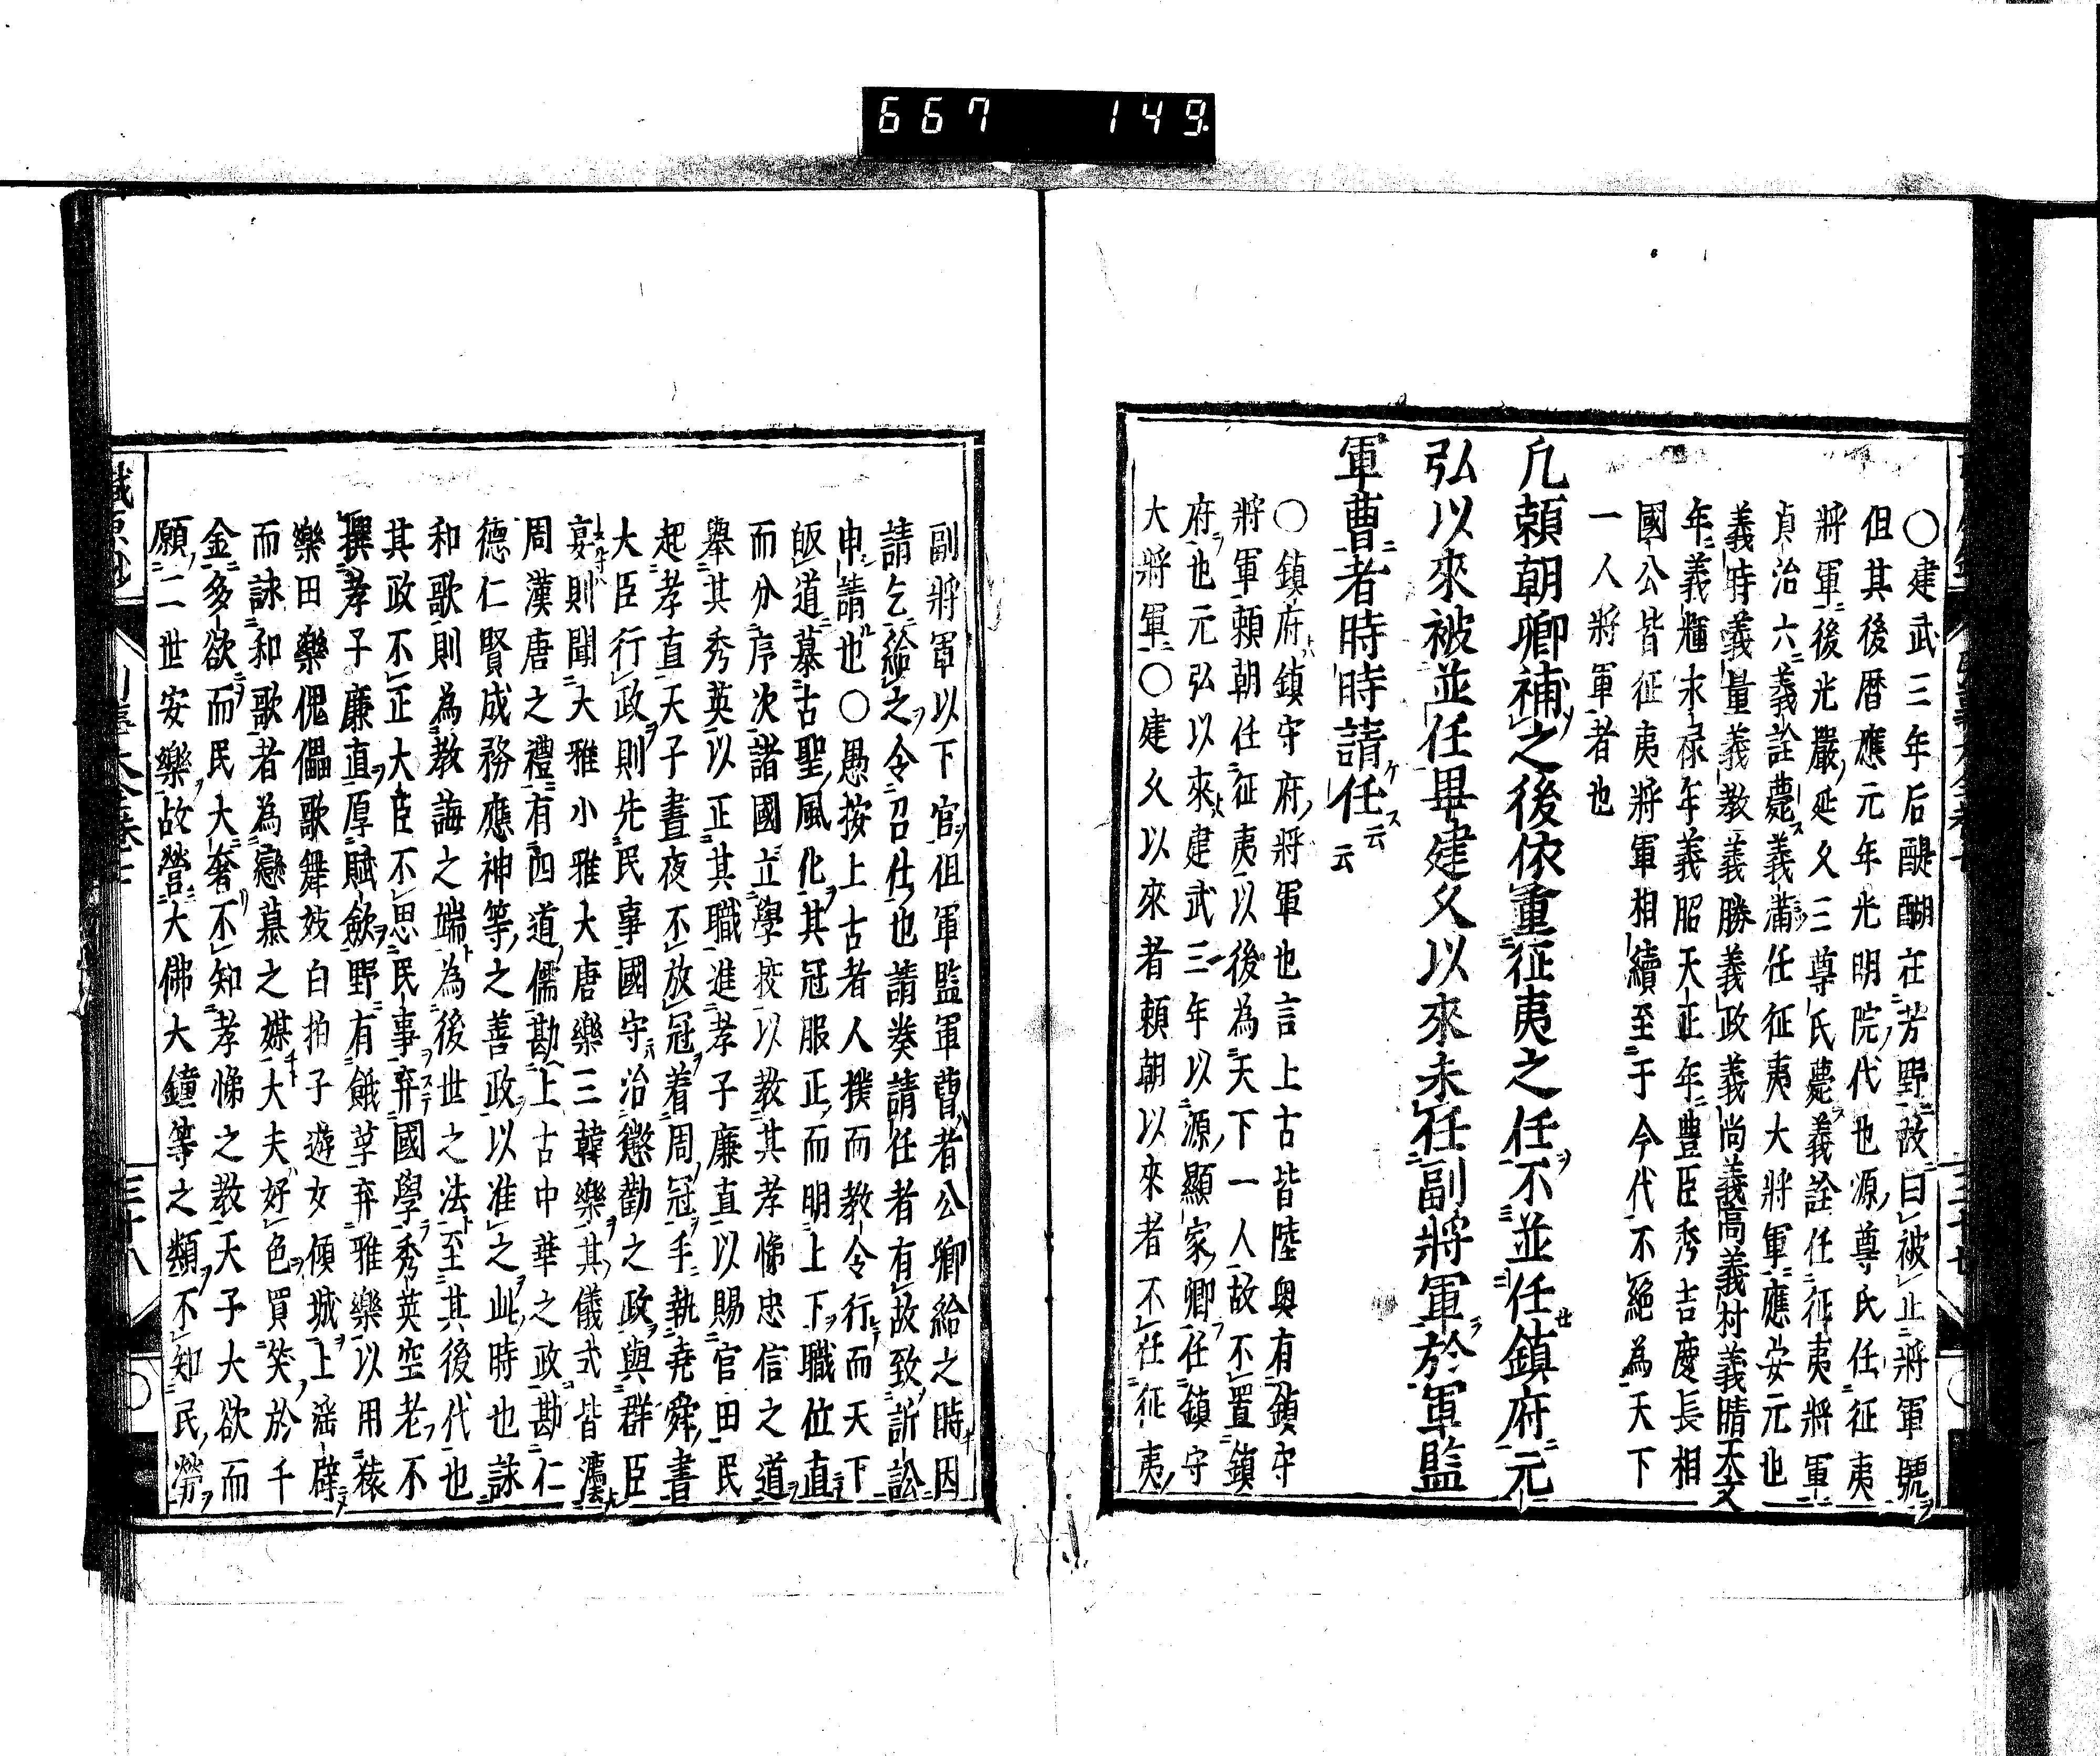 667 149
〇建武三年后醍醐在芳野故曰被止將軍號
但其後暦應元年光明院代也源尊氏任征夷
將軍後光嚴延文三尊氏薨義詮任征夷將軍
貞治六義詮薨義滿任征夷大將軍應安元也
義時義量義教義勝義政義尚義高義村義晴天文
年義輝永禄年義昭天正年豊臣秀吉慶長相
國公皆征夷將軍相續至于今代不絕為天下
一人將軍者也
凡頼朝卿補之後依重征夷之任不並任鎮府元
弘以來被並任畢建父以來未任副將軍於軍監
軍曹者時時請任云云
〇鎮府鎮守府將軍也言上古皆陸奥有鎮守
將軍頼朝任征夷以後為天下一人故不置鎮
府也元弘以來建武三年以源顯家卿任鎮守
大將軍〇建父以來者頼朝以來者不任征夷
副將軍以下官但軍監軍曹者公卿給之時因
請乞給之令召仕也請奏請任者有故致訴訟
申請也〇愚按上古者人撲而教令行而天下
皈道慕古聖風化其冠服正而明上下職位直
而分序次諸國立學挍以教其孝悌忠信之道
舉其秀英以正其職進孝子廉直以賜官田民
起孝直天子晝夜不放冠着周冠手執尭舜書
大臣行政則先民事國守治懲勸之政與群臣
宴則聞大雅小雅大唐樂三韓樂其儀式皆
周漢唐之禮有四道儒勘上古中華之政勘仁
德仁賢成務應神等之善政以准之此時也詠
和歌則為教誨之端為後世之法至其後代也
其政不正大臣不思民事弃國學秀英空老不
撰孝子廉直厚賦歛野有餓莩弃雅樂以用猿
樂田樂傀儡歌舞妓白拍子遊女傾城上滛辟
而詠和歌者為戀慕之媒大夫好色買笑於千
金多欲而民大奢不知孝悌之教天子大欲而
願二世安樂故營大佛大鐘等之類不知民勞
三十八